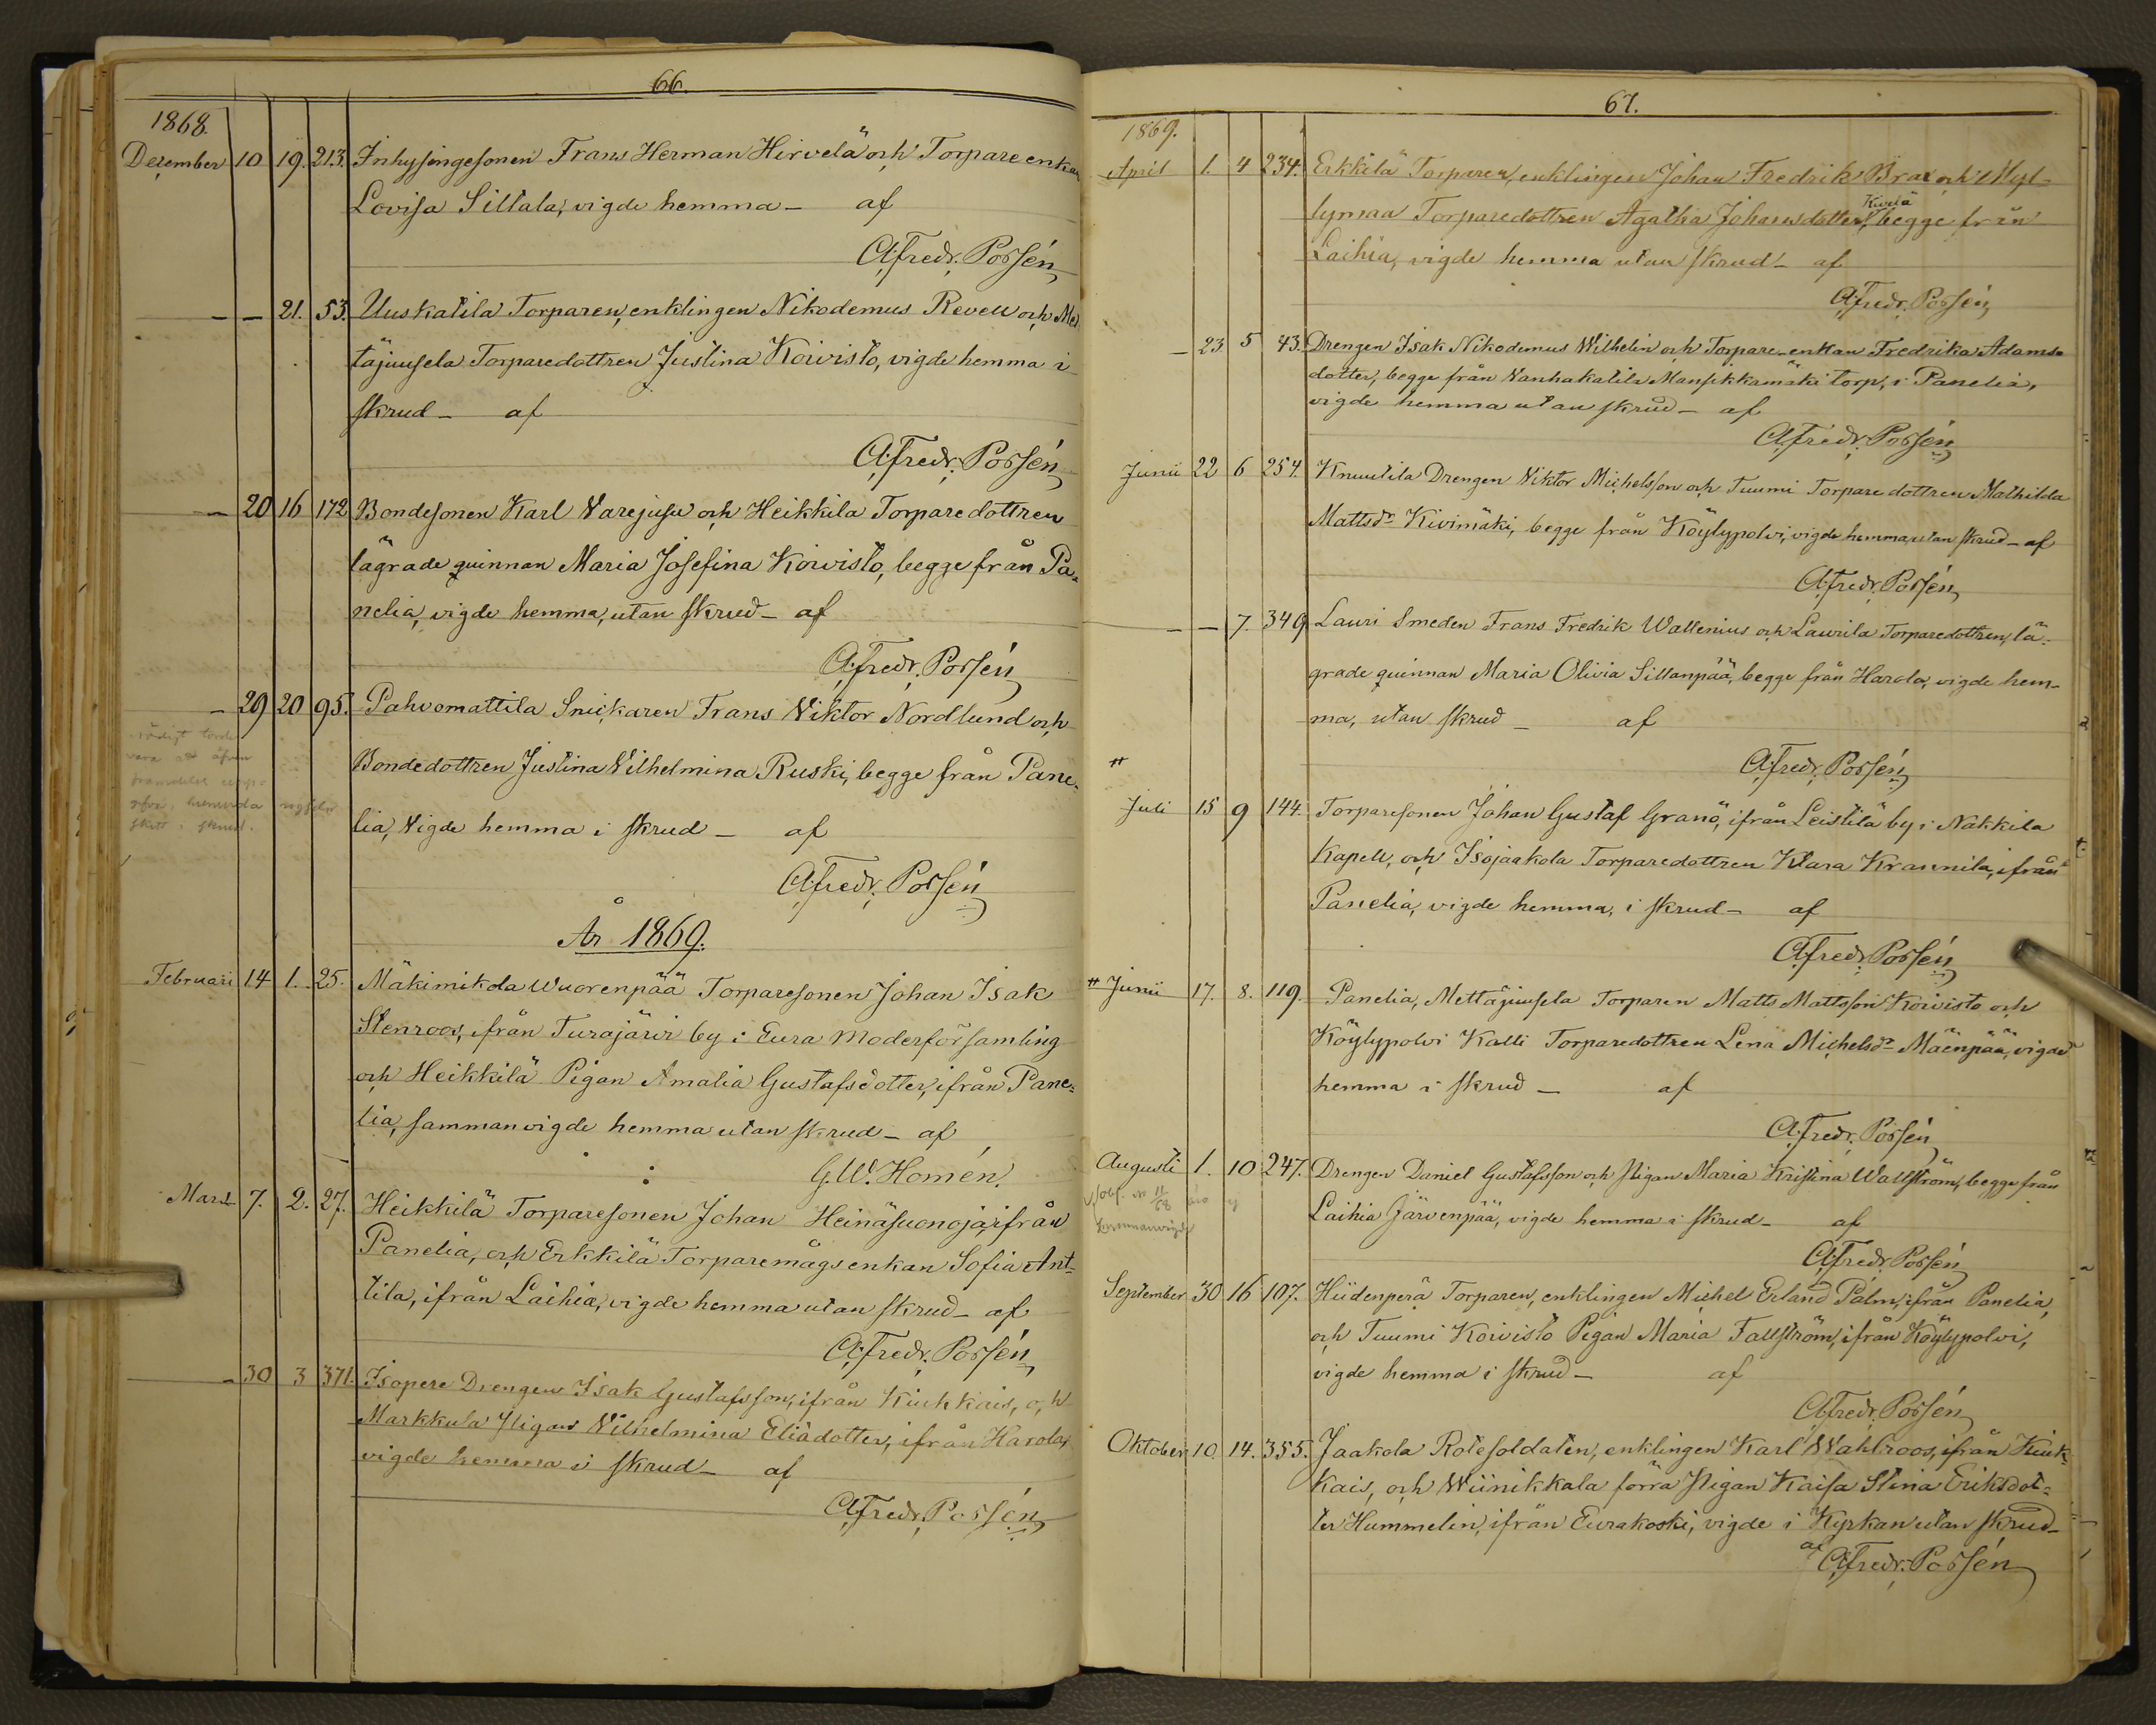 66.
1868.
December 10 19. 213. Inhysingesonen Frans Herman Hirvelä och Torpareenkan
Lovisa Sillala, vigde hemma – af
A. Fredr. Possén
– – 21. 53. Uuskatila Torparen, enklingen Nikodemus Revell och Met
täjuusela Torparedottren Justina Koivisto, vigde hemma i
skrud – af
A. Fredr. Possén
– 20 16 172 Bondesonen Karl Varejusu och Heikkila Torparedottren
lägrade quinnan Maria Josefina Koivisto, begge från Pa-
nelia, vigde hemma, utan skrud – af
A. Fredr. Possén
– 29 20 95. Pahvomattila Snickaren Frans Viktor Nordlund och
Bondedottren Justina Vilhelmina Ruski, begge från Pane-
lia, vigde hemma i skrud – af
A. Fredr. Possén
År 1869.
Februari 14 1. 25. Mäkimikola Wuorenpää Torparesonen Johan Isak
Stenroos, ifrån Turajärvi by i Eura Moderförsamling
och Heikkilä Pigan Amalia Gustafsdotter, ifrån Pane-
lia, sammanvigde hemma utan skrud – af
G. W. Homén.
Mars 7. 2. 27. Heikkilä Torparesonen Johan Heinäsuonoja, ifrån
Panelia, och Erkkilä Torparemågsenkan Sofia Ant-
tila, ifrån Laihia, vigde hemma utan skrud – af
A. Fredr. Possén
– 30 3 371. Isopere Drengen Isak Gustafsson, ifrån Kiukkais, och
Markkula Pigan Vilhelmina Eliädotter, ifrån Harola,
vigde hemma i skrud – af
A. Fredr. Possén
67.
1869.
April 1. 4 234. Erkkilä Torparen, enklingen Johan Fredrik Brax och Myl-
Kuriä
lymaa Torparedottren Agatha Johansdotter, begge från
Laihia, vigde hemma utan skrud – af
A. Fredr. Possén
– 23 5 43. Drengen Isak Nikodemus Wilhelin och Torpare-enkan Fredrika Adams-
dotter, begge från Vanhakatila Mansikkamäki torp, i Panelia,
vigde hemma utan skrud – af
A. Fredr. Possén
Junii 22 6 254. Knuutila Drengen Viktor Michelsson och Tuumi Torparedottren Mathilda
Mattsdr Kivimäki, begge från Köylypolvi, vigde hemma, utan skrud – af
A. Fredr. Possén
– – 7. 349 Lauri Smeden Frans Fredrik Wallenius och Laurila Torparedottren, lä-
grade quinnan Maria Olivia Sillanpää, begge från Harola, vigde hem-
ma, utan skrud – af
A. Fredr. Possén
Juli 15 9 144. Torparesonen Johan Gustaf Granö, ifrån Leistilä by i Nakkila
Kapell, och Isojaakola Torparedottren Klara Krannila, ifrån
Panelia, vigde hemma, i skrud – af
A. Fredr. Possén
Junii 17. 8. 119. Panelia, Mettäjuusela Torparen Matts Mattsson Koivisto och
Köylypolvi Kalli Torparedottren Lena Michelsdr Mäenpää, vigde
hemma i skrud – af
A. Fredr. Possén
Augusti 1. 10 247. Drengen Daniel Gustafsson och Pigan Maria Kristina Wallström, begge från
Laihia Järvenpää, vigde hemma i skrud – af
A. Fredr. Possén
September 30 16 107. Hiidenperä Torparen, enklingen Michel Erland Palm, ifrån Panelia,
och Tuumi Koivisto Pigan Maria Fallström, ifrån Köylypolvi,
vigde hemma i skrud – af
A. Fredr. Possén
Oktober 10. 14. 355. Jaakola Rotesoldaten, enklingen Karl Wahlroos, ifrån Kiuk-
kais, och Wiinikkala förra Pigan Kaisa Stina Eriksdot-
ter Hummelin, ifrån Eurakoski, vigde i Kyrkan utan skrud –
af A. Fredr. Possén